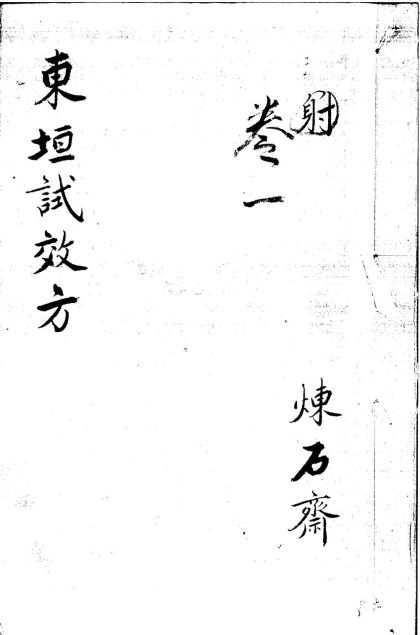 射
卷一
煉石齋
東垣試效方